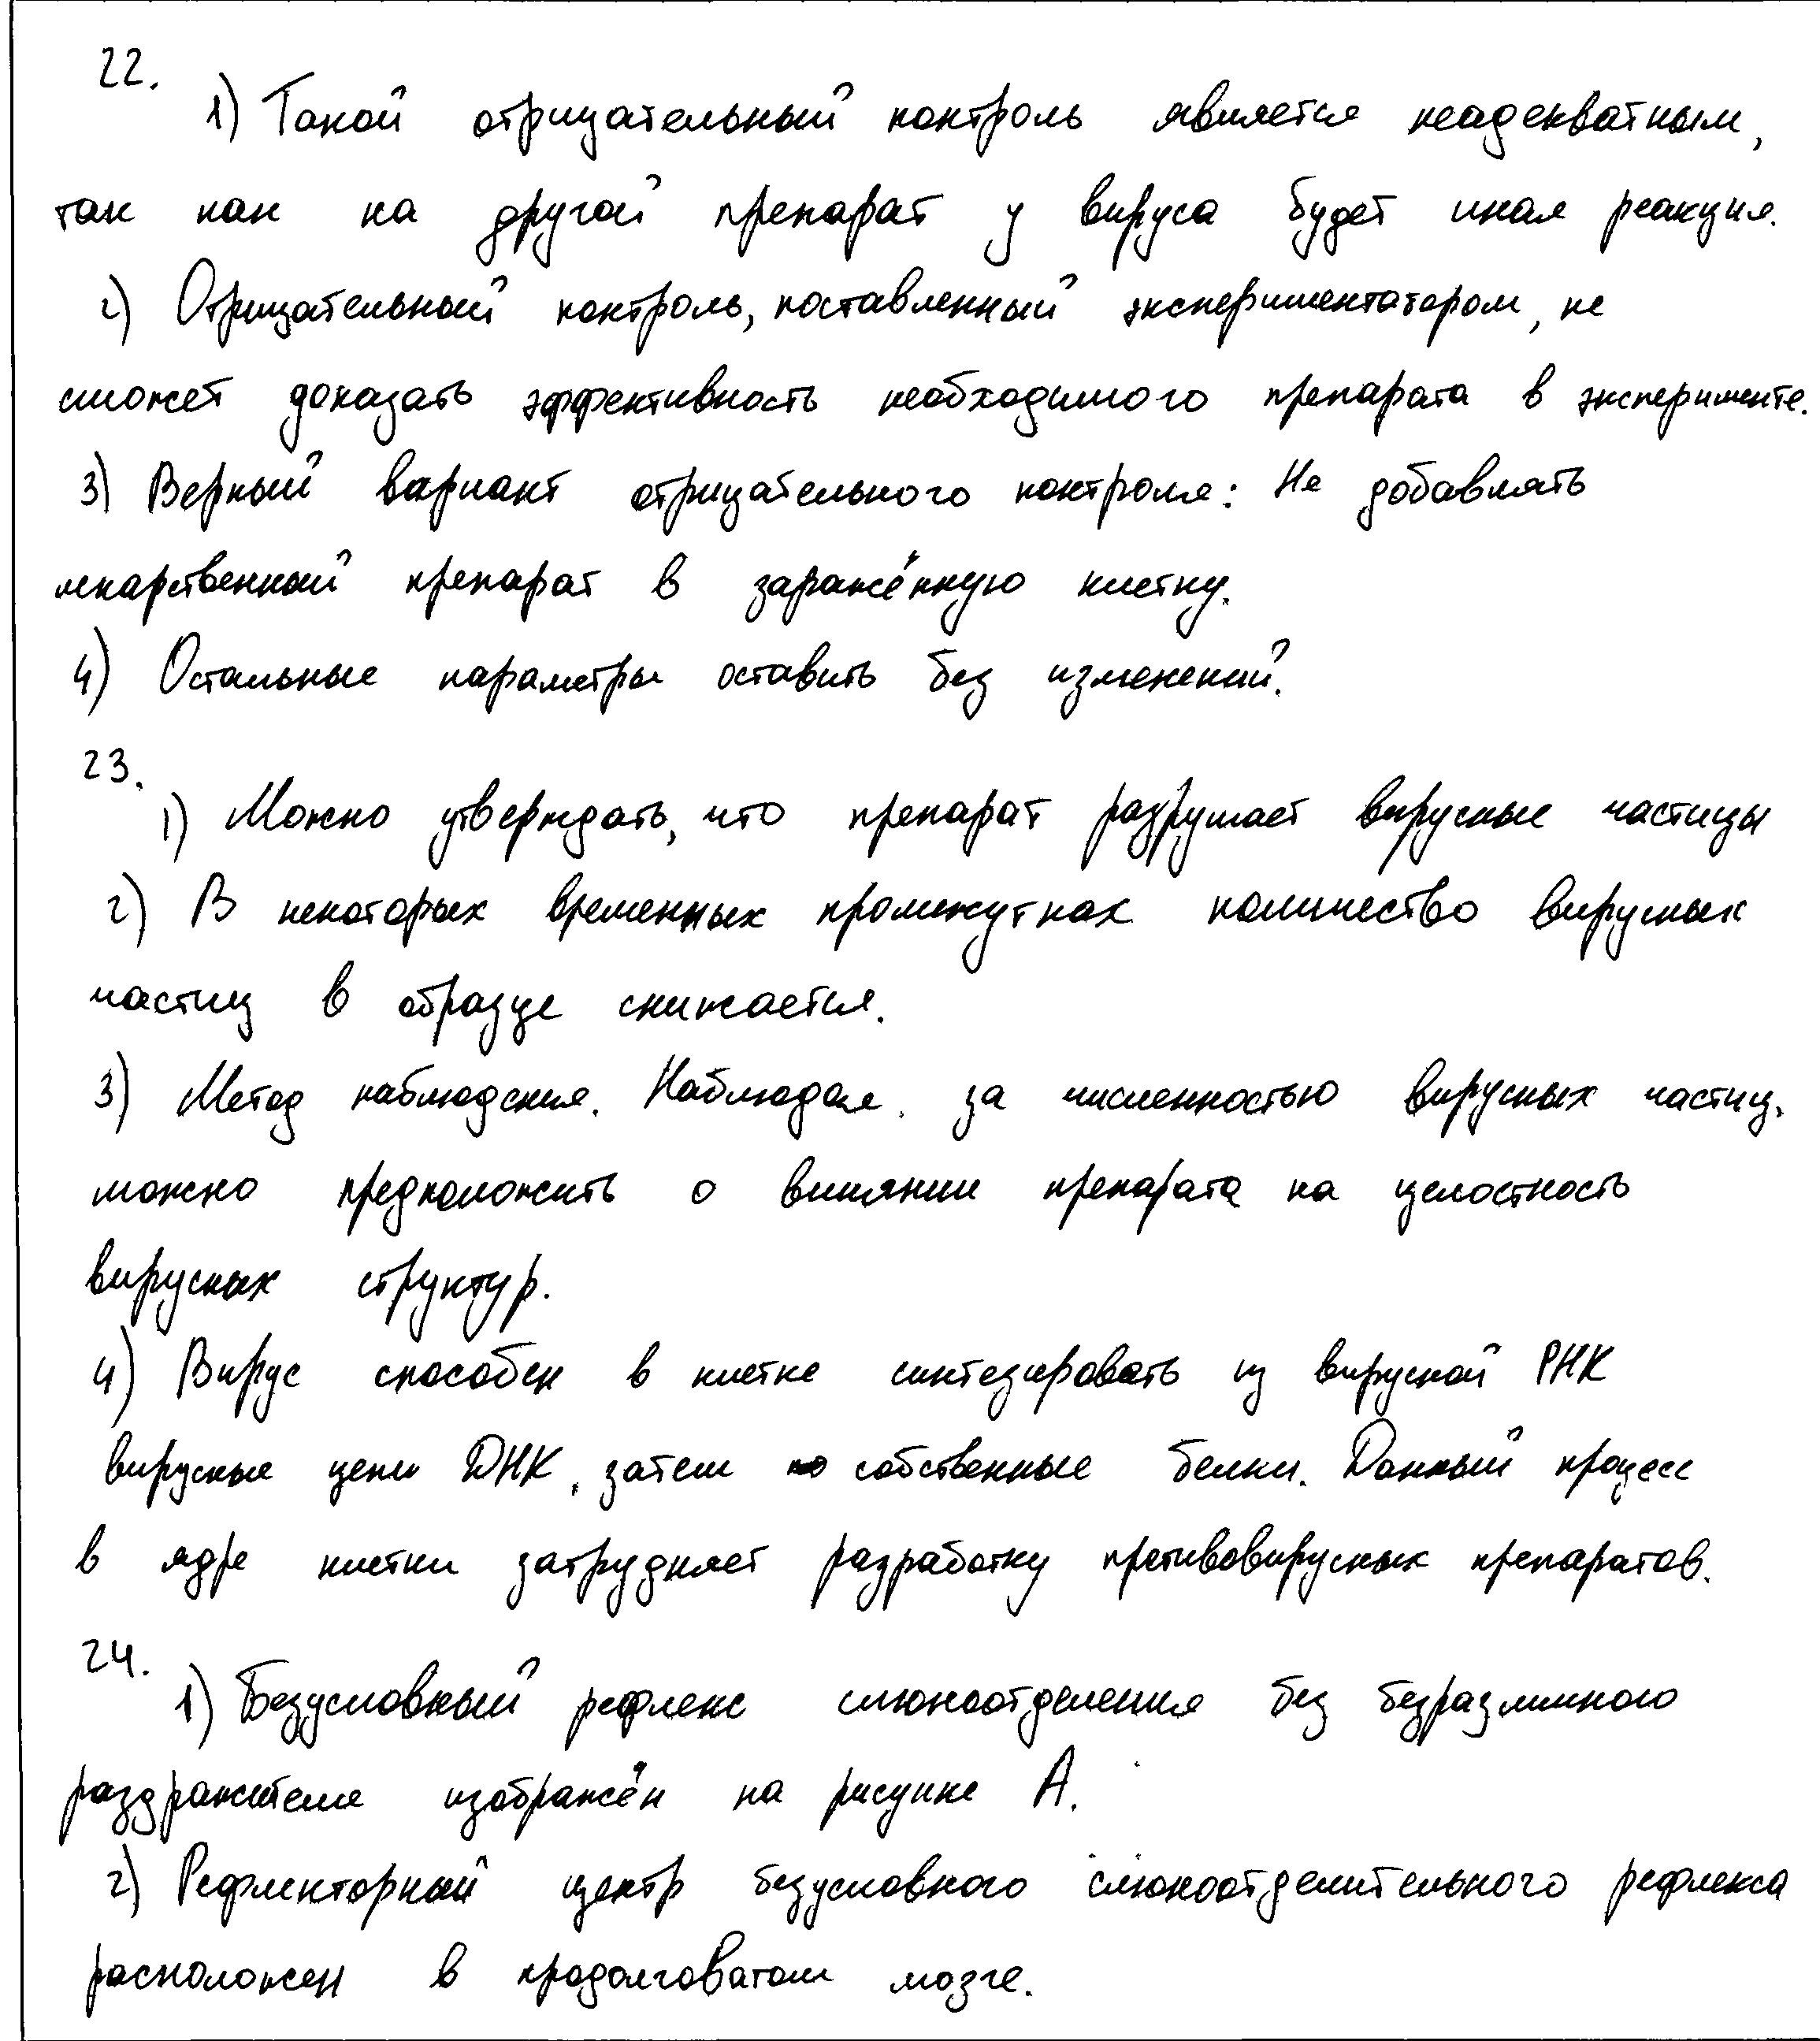 22.
1) Такой отрицательный контроль является неадекватным,
так как на другой препарат у вируса будет иная реакция.
2) Отрицательный контроль, поставленный экспериментатором, не
сможет доказать эффективность необходимого препарата в эксперименте.
3) Верный вариант отрицательного контроля: Не добавлять
лекарственный препарат в заражённую клетку.
4) Остальные параметры оставить без изменений.
23.
1) Можно утверждать, что препарат разрушает вирусные частицы
2) В некоторых временных промежутках количество вирусных
частиц в образце снижается.
3) Метод наблюдения. Наблюдая за численностью вирусных частиц,
можно предположить о влиянии препарата на целостность
вирусных структур.
4) Вирус способен в клетке синтезировать из вирусной РНК
вирусные цепи ДНК, затем собственные белки. Данный процесс
в ядре клетки затрудняет разработку противовирусных препаратов.
24.
1) Безусловный рефлекс слюноотделения без безразличного
раздражителя изображён на рисунке А.
2) Рефлекторный центр безусловного слюноотделительного рефлекса
расположен в продолговатом мозге.